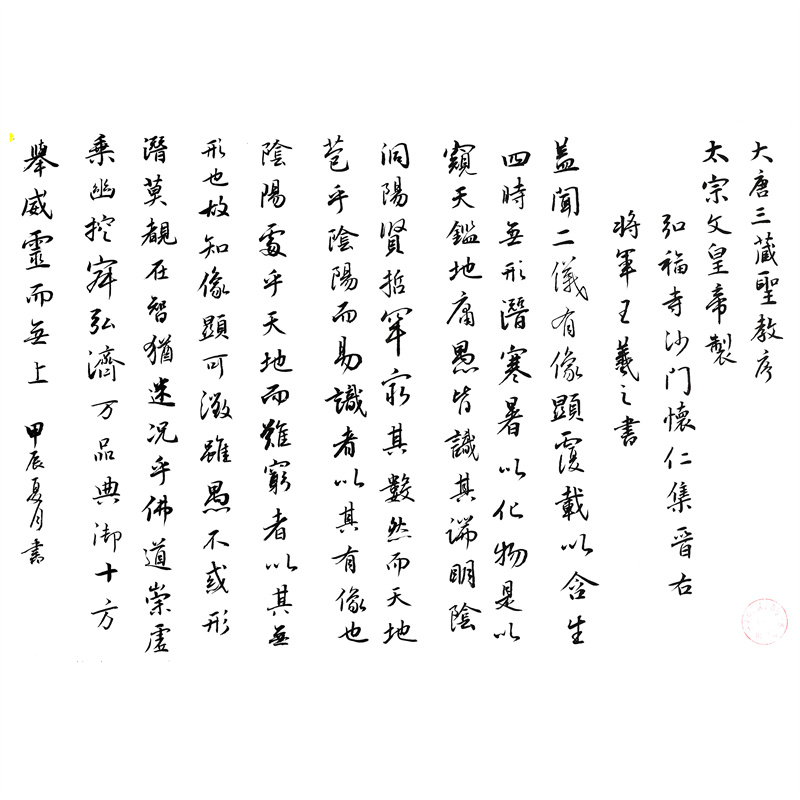 大唐三藏聖教序
太宗文皇帝製
弘福寺沙门懷仁集晉右
將軍王羲之書
蓋聞二儀有像顯覆載以含生
四時無形潛寒暑以化物是以
窺天鑑地庸愚皆識其端明陰
洞陽賢哲罕窮其數然而天地
苞乎陰陽而易識者以其有像也
陰陽處乎天地而難窮者以其無
形也故知像顯可徵雖愚不惑形
潛莫覩在智猶迷况乎佛道崇虛
乘幽控寂弘濟万品典御十方
舉威靈而無上 甲辰夏月書